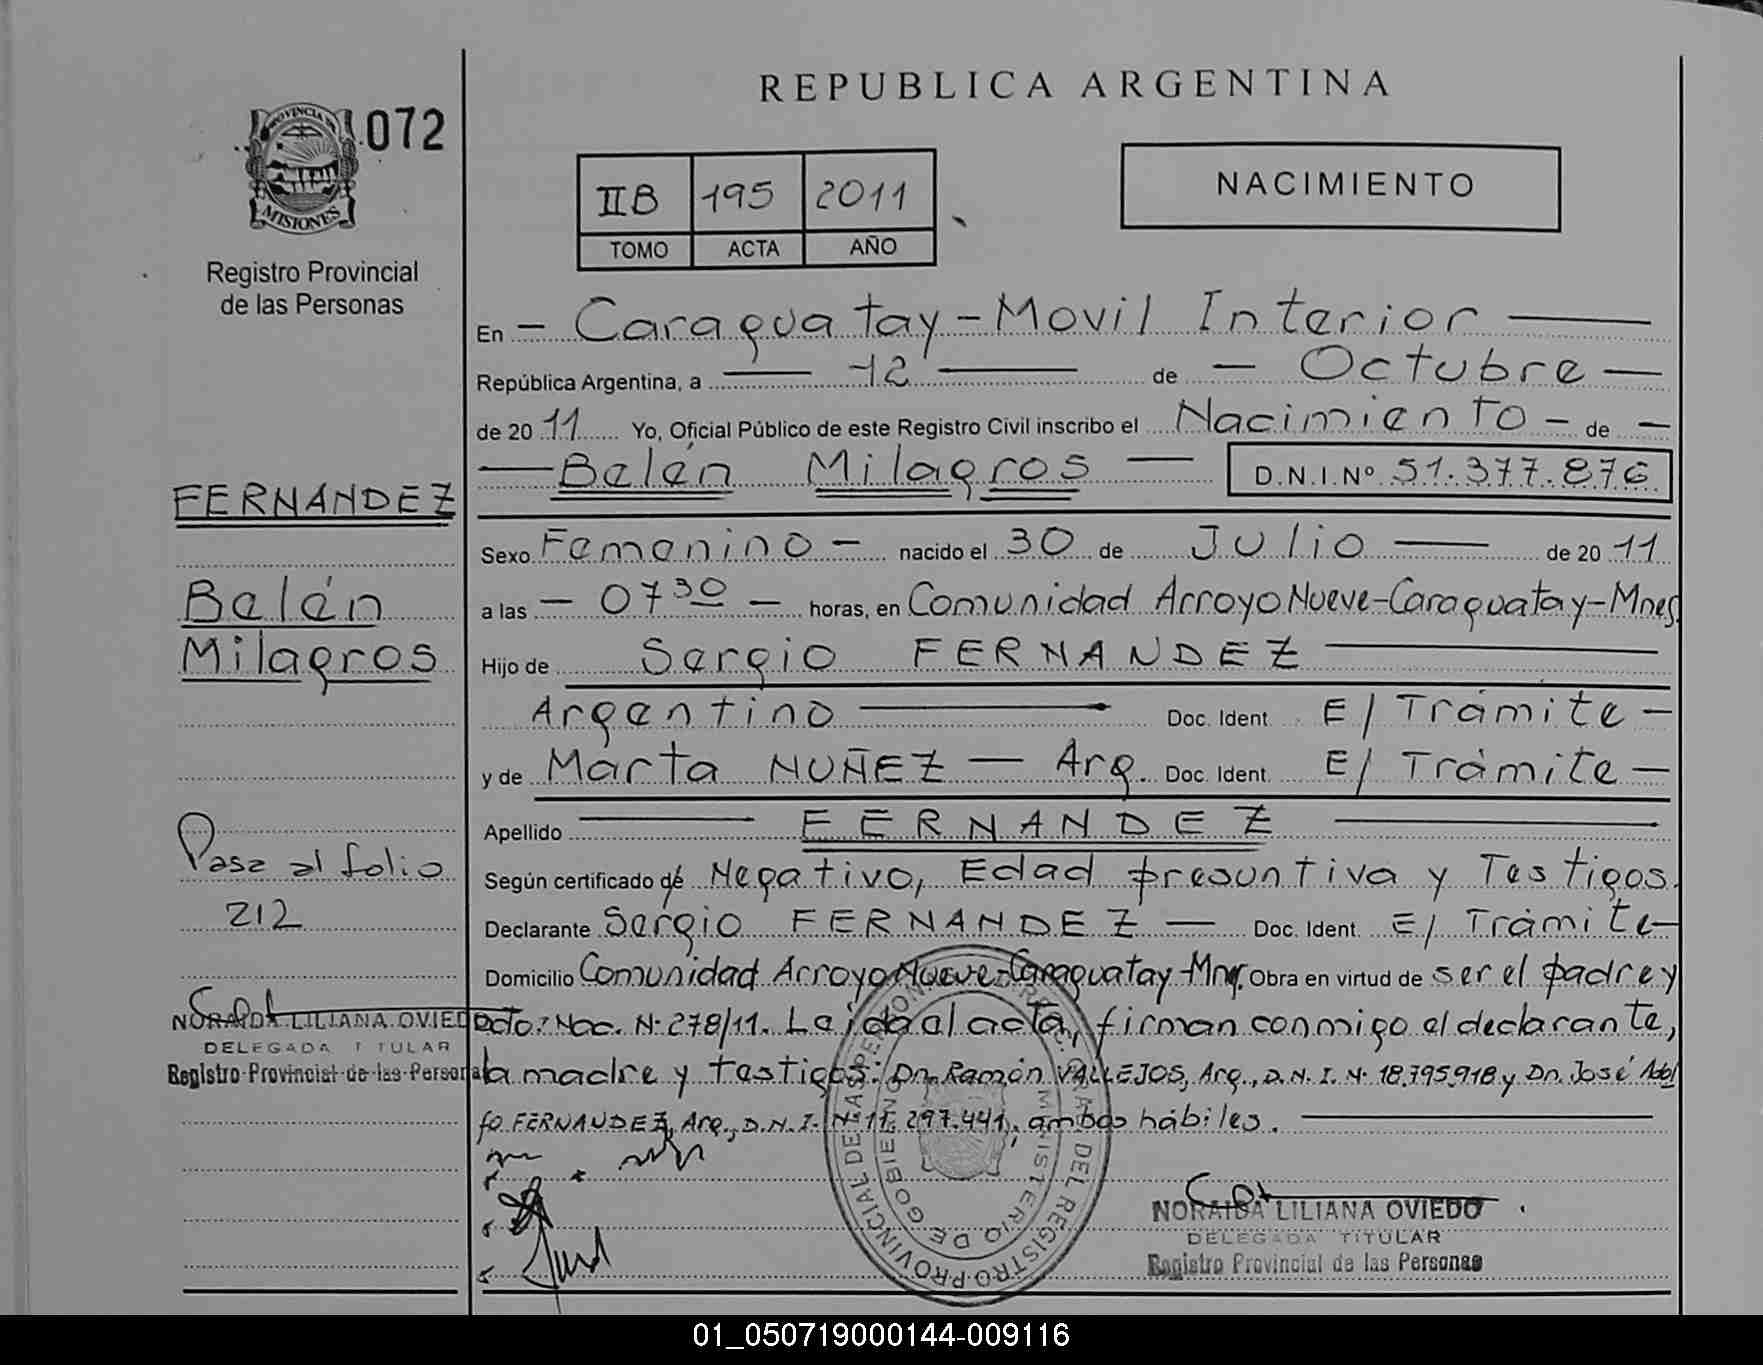 REPUBLICA ARGENTINA
PROVINCIA DE
MISIONES
072
Registro Provincial
de las Personas
IIB 195 2011
TOMO ACTA AÑO
NACIMIENTO
En — Caraguatay - Movil Interior —
República Argentina, a — 12 — de — Octubre —
de 20 11 Yo, Oficial Público de este Registro Civil inscribo el Nacimiento — de —
— Belén Milagros — D.N.I.Nº 51.377.876
FERNANDEZ
Sexo Femenino — nacido el 30 de Julio — de 20 11
Belén
Milagros
a las — 07 30 — horas, en Comunidad Arroyo Nueve-Caraguatay-Mnes.
Hijo de Sergio FERNANDEZ —
Argentino — Doc. Ident. E/ Trámite —
y de Marta NUÑEZ — Arg. Doc. Ident. E/ Trámite —
Apellido — FERNANDEZ —
Pasa al folio
212
Según certificado de Negativo, Edad presuntiva y Testigos.
Declarante Sergio FERNANDEZ — Doc. Ident. E/ Trámite —
Domicilio Comunidad Arroyo Nueve-Caraguatay-Mnes. Obra en virtud de ser el padre y
NORAIDA LILIANA OVIEDO
DELEGADA TITULAR
Registro Provincial de las Personas
Dcto. Nac. Nº 278/11. Leída al acta, firman conmigo el declarante,
la madre y testigos: Dn. Ramón VALLEJOS, Arg., D.N.I. Nº 18.795.918 y Dn. José Adol
fo FERNANDEZ, Arg., D.N.I. Nº 11.297.441, ambos hábiles. —
REGISTRO PROVINCIAL DE LAS PERSONAS
MINISTERIO DE GOBIERNO
DEL REGISTRO
NORAIDA LILIANA OVIEDO
DELEGADA TITULAR
Registro Provincial de las Personas
01_050719000144-009116